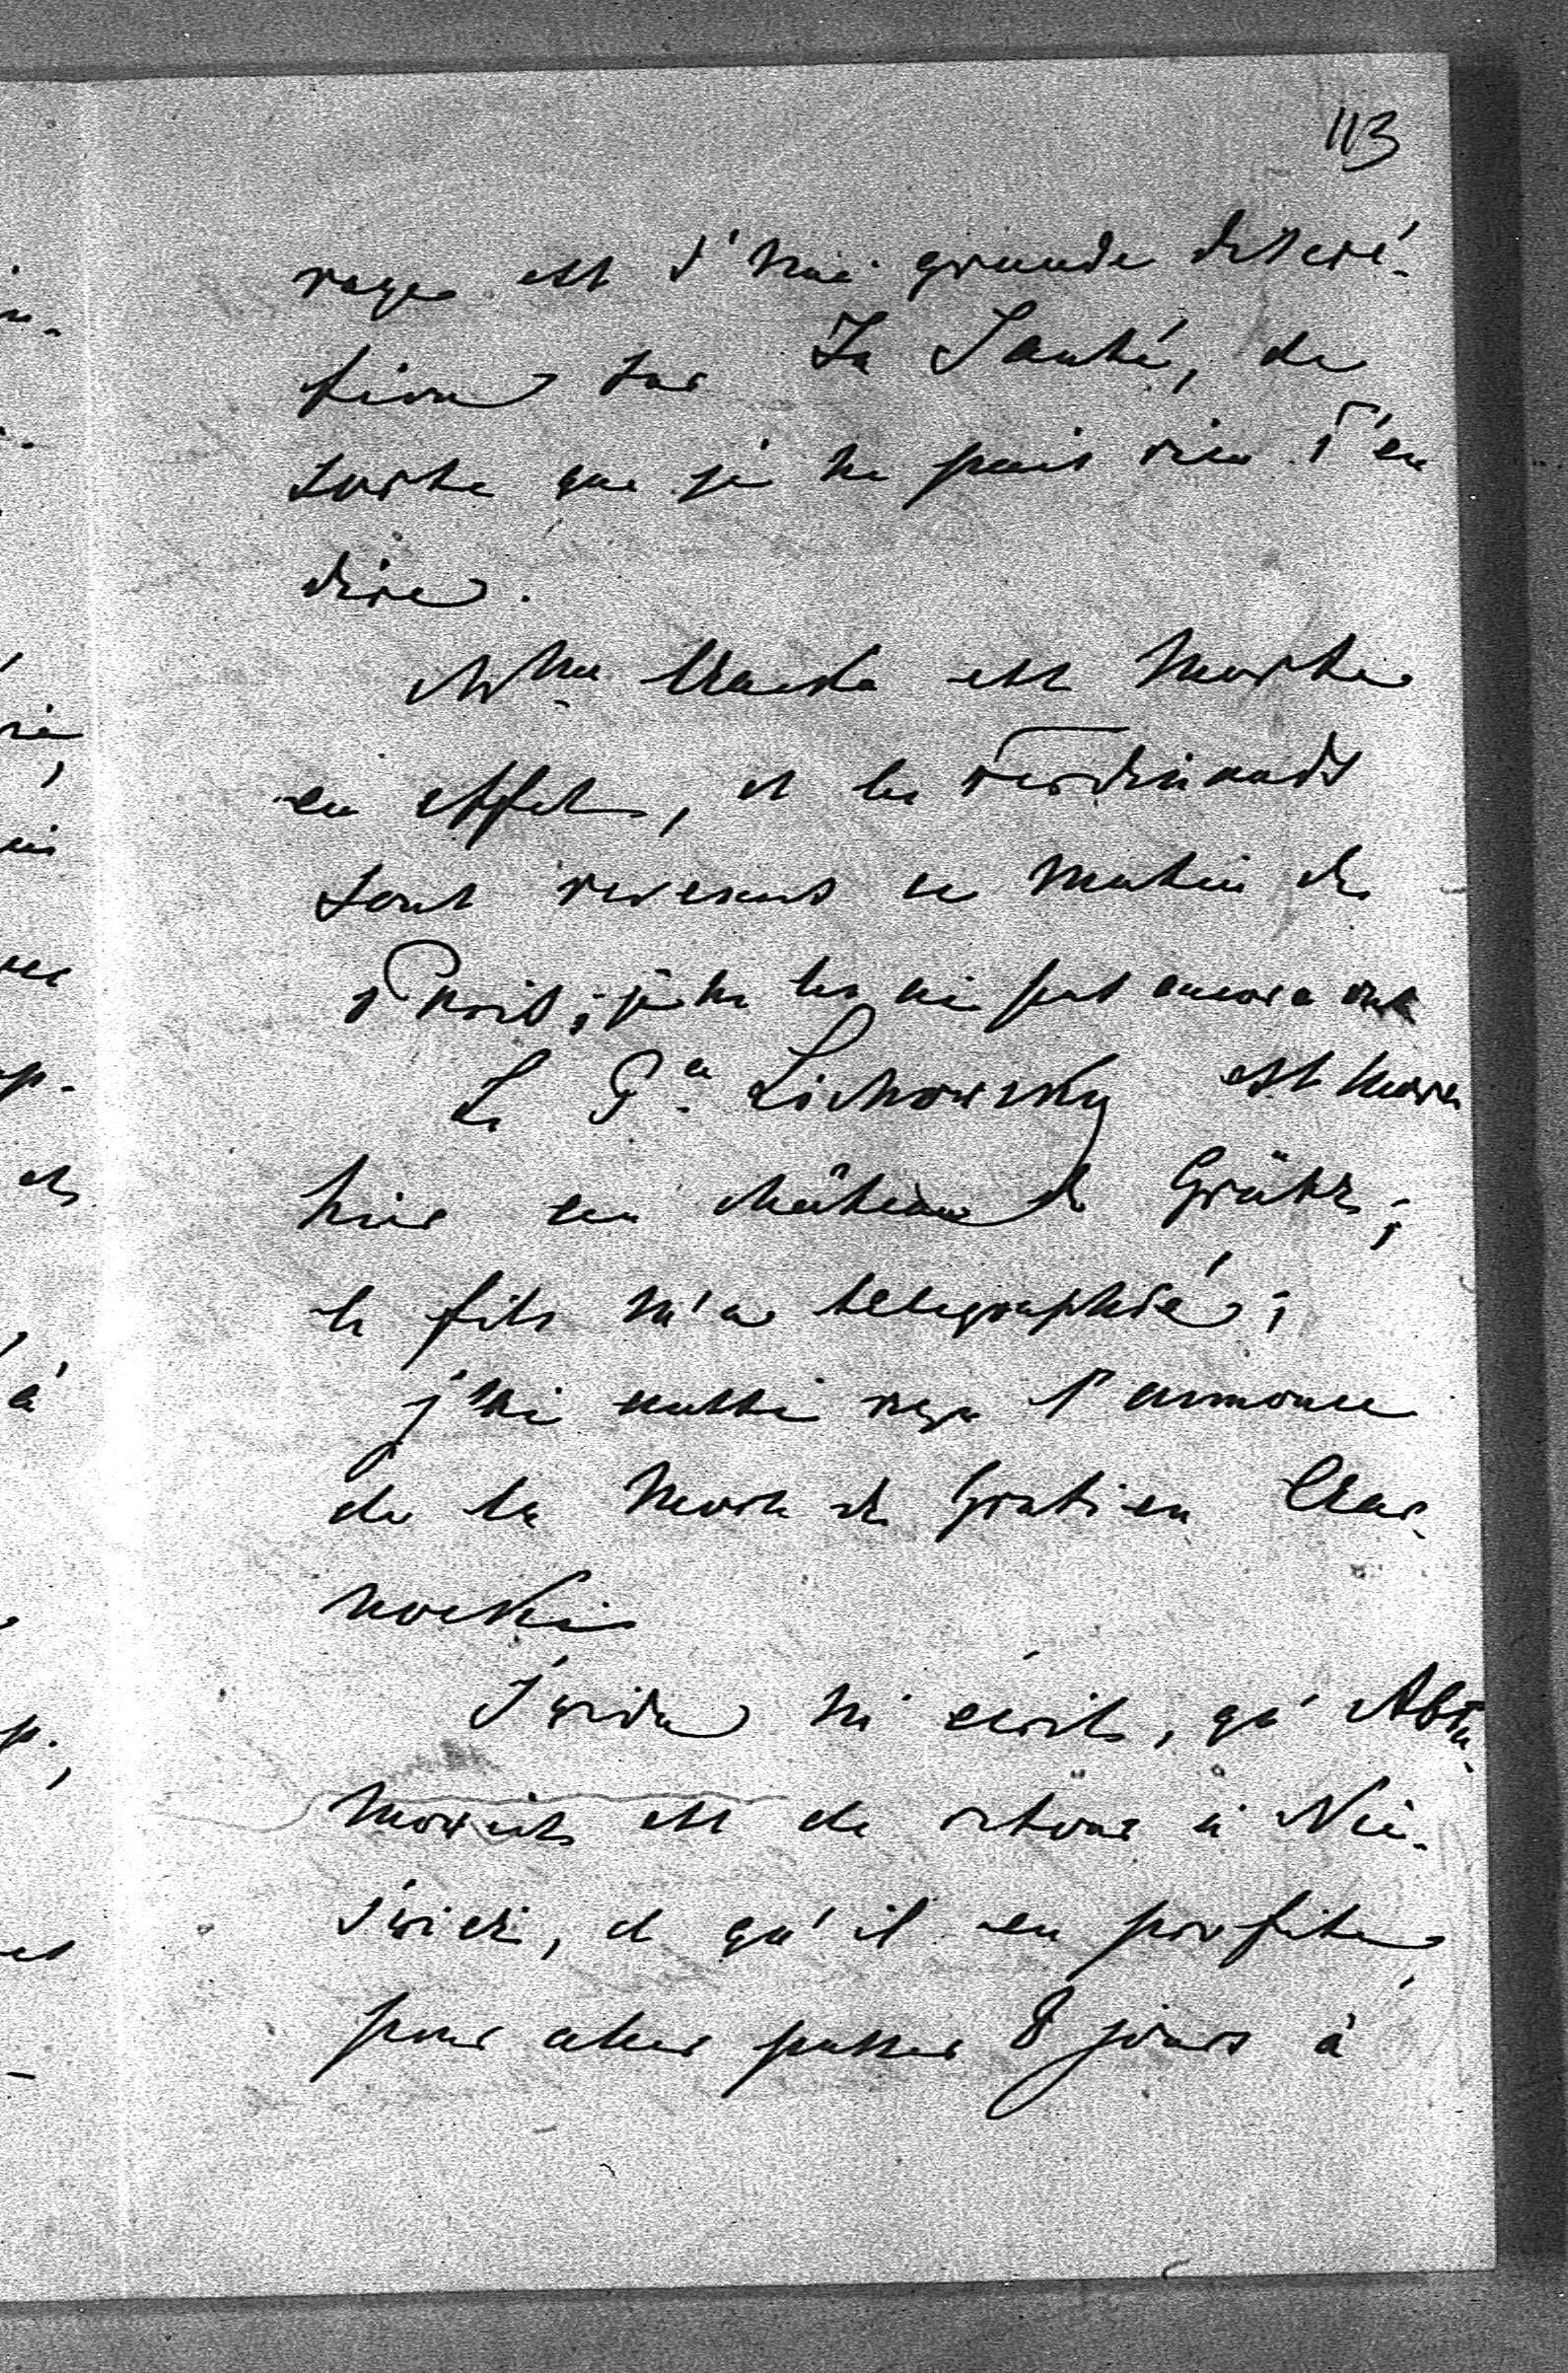 113
rage est d'une grande discré-
tion sur Sa Santé, de
sorte que je ne puis rien T'en
dire.
Mme est morte
en effet, et les Ferdinands
sont revenus ce matin de
Paris; je ne les ai pas encore vus
Le Pce Lichnowsky est mort
hier au château de Grätz;
le fils m'a telegraphié;
j'ai aussi reçu l'annonce
de la mort de Gratien Czar-
nocki
Swida m'écrit, qu'Abra-
mowicz est de retour à Nie-
świcz, et qu'il en profite
pour aller passer 8 jours à